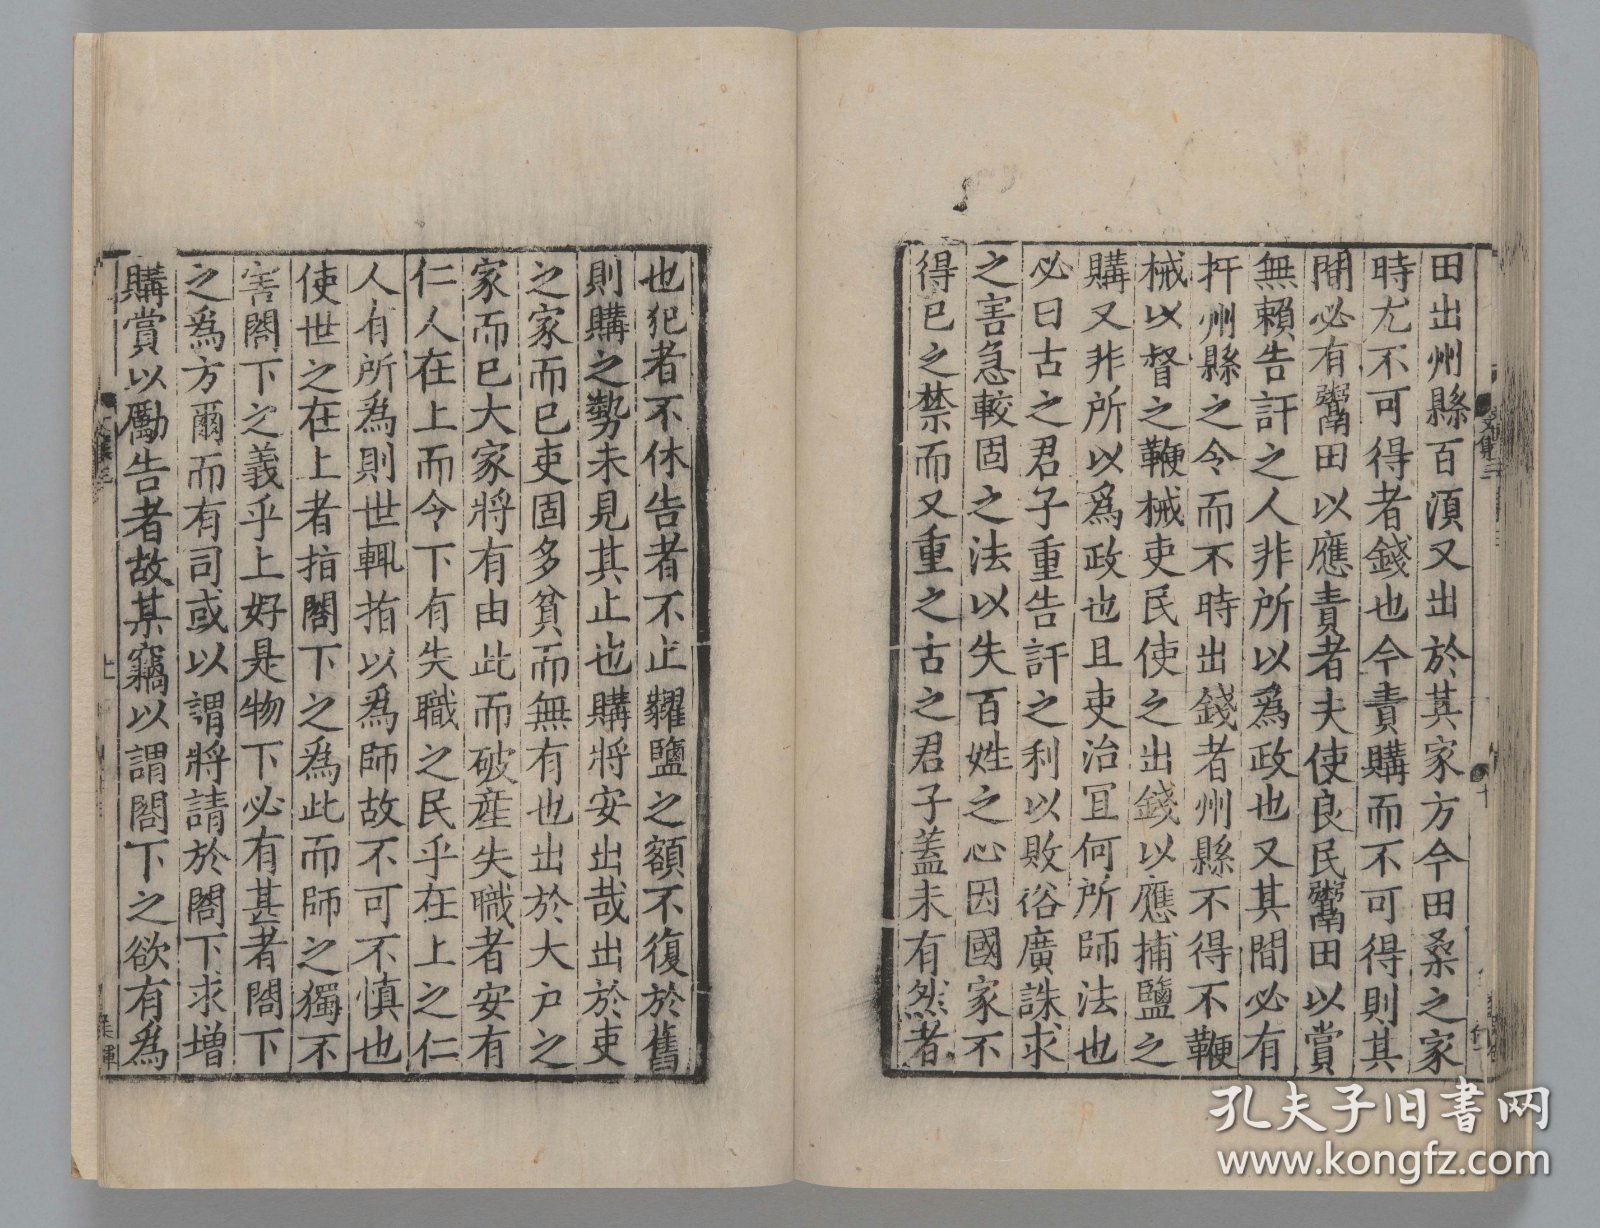 田出州縣百湏又出於其家方今田桑之家
時尤不可得者錢也今責購而不可得則其
間必有鬻田以應責者夫使良民鬻田以賞
無賴告訐之人非所以爲政也又其間必有
扞州縣之令而不時出錢者州縣不得不鞭
械以督之鞭械吏民使之出錢以應捕鹽之
購又非所以爲政也且吏治冝何所師法也
必曰古之君子重告訐之利以敗俗廣誅求
之害急較固之法以失百姓之心因國家不
得已之禁而又重之古之君子蓋未有然者
也犯者不休告者不止糶鹽之額不復於舊
則購之勢未見其止也購將安出哉出於吏
之家而已吏固多貧而無有也出於大户之
家而已大家將有由此而破産失職者安有
仁人在上而令下有失職之民乎在上之仁
人有所爲則世輒指以爲師故不可不慎也
使世之在上者指閤下之爲此而師之獨不
害閤下之義乎上好是物下必有甚者閤下
之爲方爾而有司或以謂將請於閤下求增
購賞以勵告者故某竊以謂閤下之欲有爲
孔夫子旧书网
www.kongfz.com